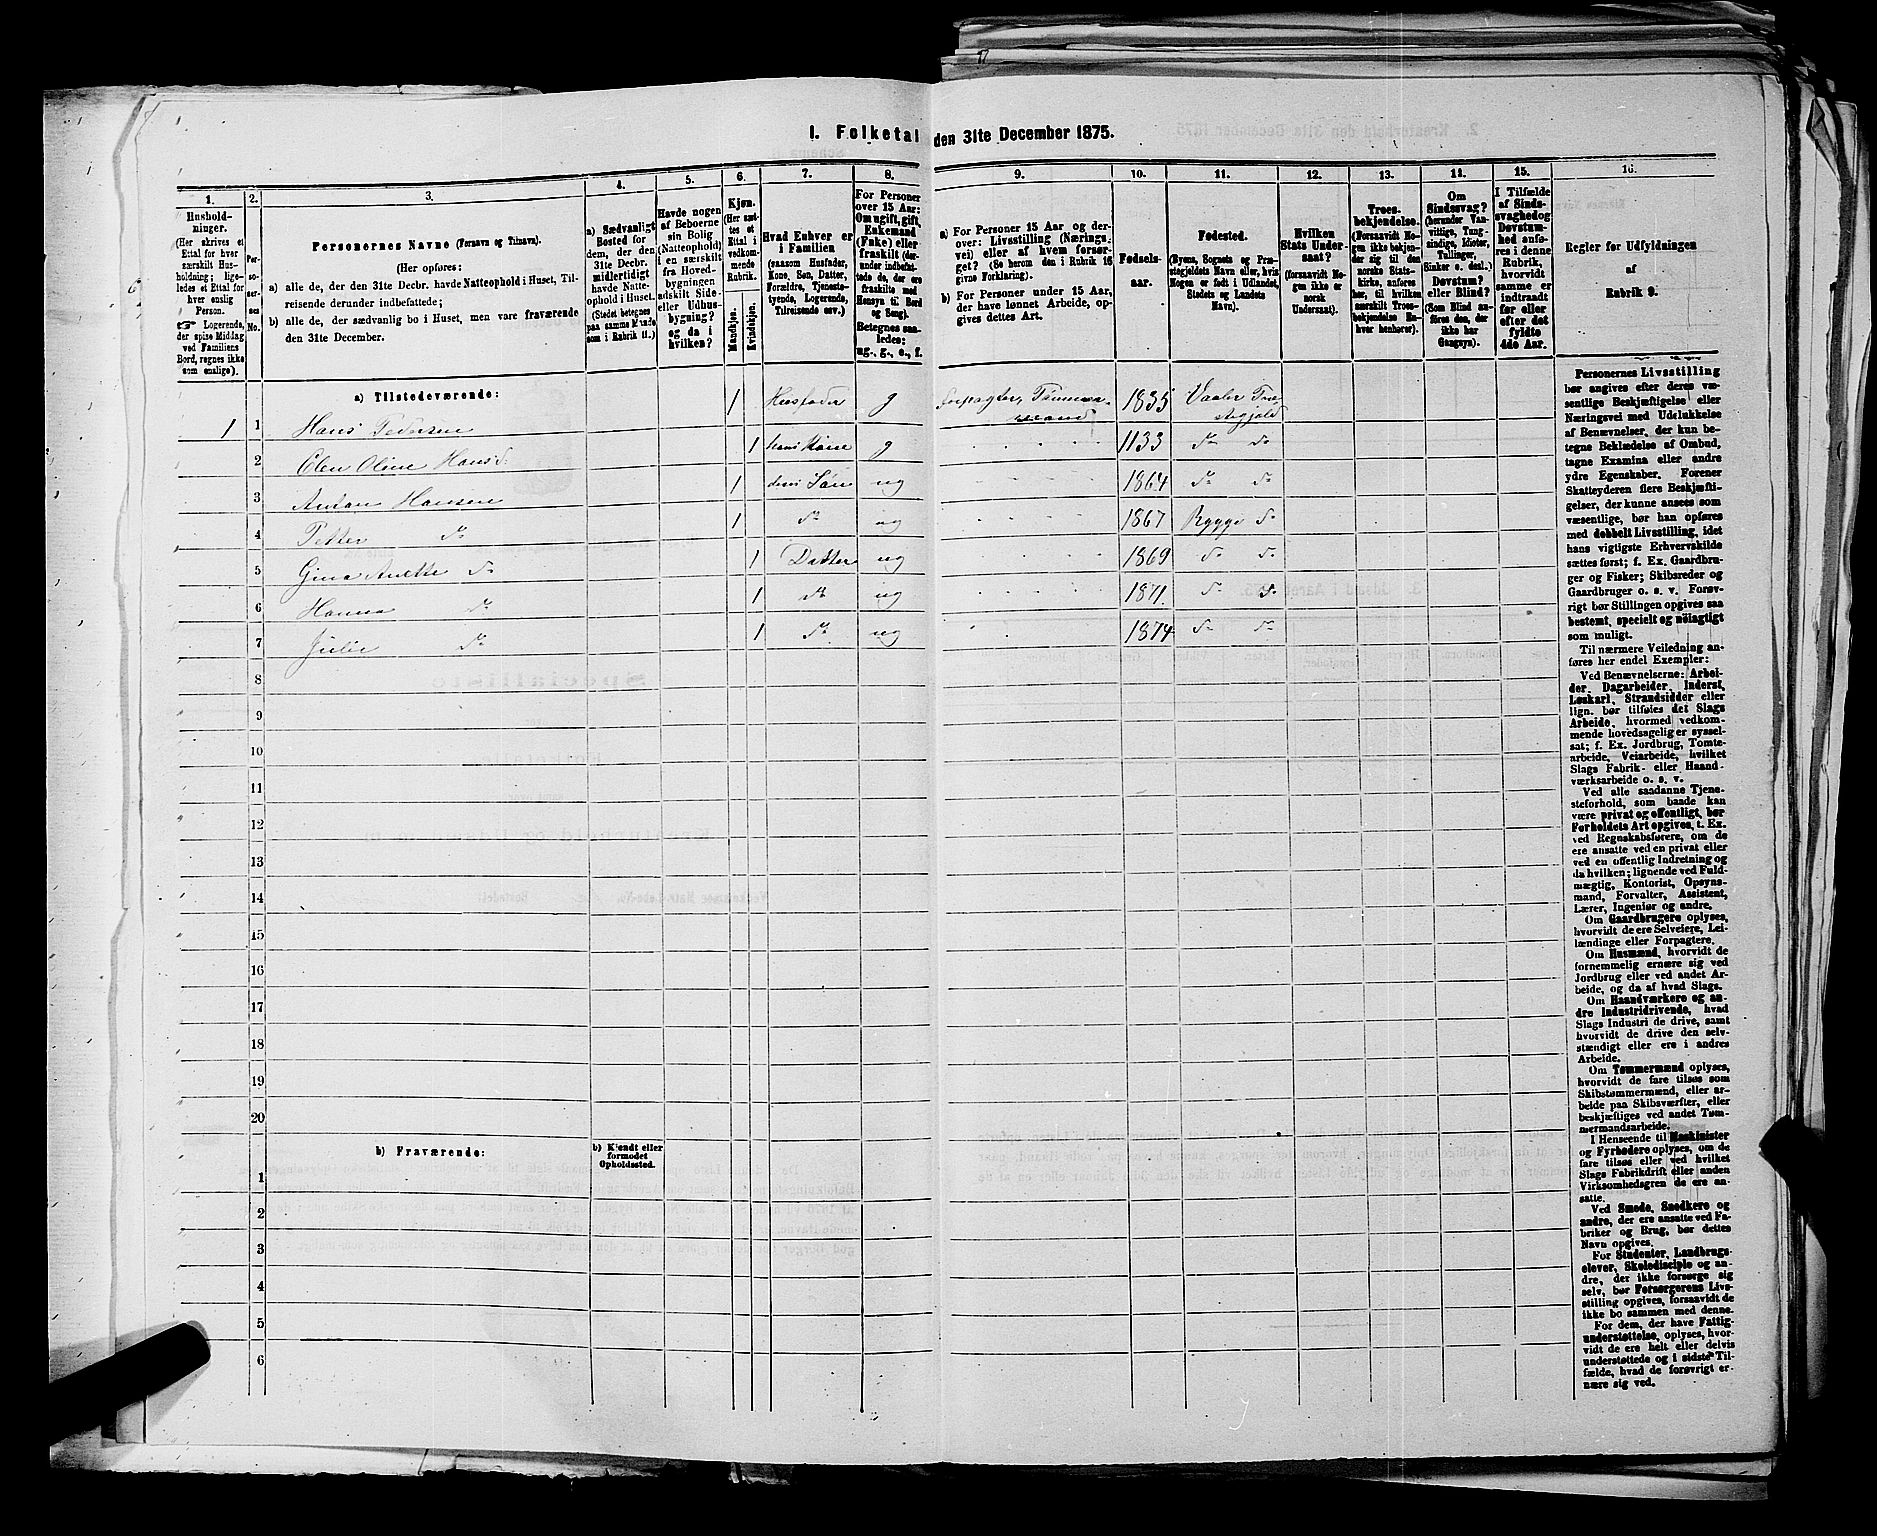 I. Folketal den 31te December 1875.
1.
Hushold-
ninger.
(Her skrives et
Ettal for hver
særskilt Hus-
holdning; lige-
ledes et Ettal for
hver enslig
Person.
☞ Logerende,
der spise Middag
ved Familiens
Bord, regnes ikke
som enslige).
2.
Per-
so-
ner-
nes
No.
3.
Personernes Navne (Fornavn og Tilnavn).
(Her opføres:
a) alle de, der den 31te Decbr. havde Natteophold i Huset, Til-
reisende derunder indbefattede;
b) alle de, der sædvanlig bo i Huset, men vare fraværende
den 31te December.
4.
a) Sædvanligt
Bosted for
dem, der den
31te Decbr.
midlertidigt
havde Natte-
ophold i Huset.
(Stedet betegnes
paa samme Maade
som i Rubrik 11.)
5.
Havde nogen
af Beboerne
sin Bolig
(Natteophold)
i en særskilt
fra Hoved-
bygningen
adskilt Side-
eller Udhus-
bygning?
og da i
hvilken?
6.
Kjøn.
(Her sæt-
tes et
Ettal i
vedkom-
mende
Rubrik.
Mandkjøn.
Kvindekjøn.
7.
Hvad Enhver er
i Familien
(saasom Husfader,
Kone, Søn, Datter,
Forældre, Tjeneste-
tyende, Logerende,
Tilreisende osv.)
8.
For Personer
over 15 Aar:
Om ugift, gift,
Enkemand
(Enke) eller
fraskilt (der-
under indbefat-
tede de, der ere
fraskilte med
Hensyn til Bord
og Seng).
Betegnes saa-
ledes:
ug., g., e., f.
9.
a) For Personer 15 Aar og der-
over: Livsstilling (Nærings-
vei) eller af hvem forsør-
get? (Se herom den i Rubrik 16
givne Forklaring).
b) For Personer under 15 Aar,
der have lønnet Arbeide, op-
gives dettes Art.
10.
Fødsels-
aar.
11.
Fødested.
(Byens, Sognets og Præ-
stegjeldets Navn eller, hvis
Nogen er født i Udlandet,
Stedets og Landets
Navn).
12.
Hvilken
Stats Under-
saat?
(forsaavidt No-
gen ikke er
norsk
Undersaat).
13.
Troes-
bekjendelse.
(Forsaavidt No-
gen ikke bekjen-
der sig til den
norske Stats-
kirke, anføres
her, til hvilken
særskilt Troes-
bekjendelse En-
hver henhører).
14.
Om
Sindssvag?
(herunder Van-
vittige, Tung-
sindige, Idioter,
Tullinger,
Sinker o. desl.)
Døvstum?
eller Blind?
(Som Blind an-
føres den, der
ikke har
Gangsyn).
15.
I Tilfælde
af Sinds-
svaghed og
Døvstum-
hed anfø-
res i denne
Rubrik,
hvorvidt
samme er
indtraadt
før eller
efter det
fyldte
4de Aar.
16.
Regler for Udfyldningen
af
Rubrik 9.
a) Tilstedeværende:
1 1 Hans Pedersen 1 Husfader g forpagter, Tømmer- 1835 Vaaler Præ-
mand stegjeld
2 Elen Oline Hansd. 1 hans Kone g 1133 do do
3 Anton Hansen 1 deres Søn ug 1864 do do
4 Petter do 1 do ug 1867 Rygge do
5 Gina Anette do 1 Datter ug 1869 do do
6 Hanna do 1 do ug 1871. do do
7 Julie do 1 do ug 1874 do do
8
9
10
11
12
13
14
15
16
17
18
19
20
b) Fraværende:
b) Kjendt eller
formodet
Opholdssted.
1
2
3
4
5
6
Personernes Livsstilling
bør angives efter deres væ-
sentlige Beskjæftigelse eller
Næringsvei med Udelukkelse
af Benævnelser, der kun be-
tegne Beklædelse af Ombud,
tagne Examina eller andre
ydre Egenskaber. Forener
Skatteyderen flere Beskjæfti-
gelser, der kunne ansees som
væsentlige, bør han opføres
med dobbelt Livsstilling, idet
hans vigtigste Erhvervskilde
sættes først; f. Ex. Gaardbru-
ger og Fisker; Skibsreder og
Gaardbruger o. s. v. Forøv-
rigt bør Stillingen opgives saa
bestemt, specielt og nøiagtigt
som muligt.
Til nærmere Veiledning an-
føres her endel Exempler:
Ved Benævnelserne: Arbei-
der, Dagarbeider, Inderst,
Løskarl, Strandsidder eller
lign. bør tilføies det Slags
Arbeide, hvormed vedkom-
mende hovedsagelig er syssel-
sat; f. Ex. Jordbrug, Tomte-
arbeide, Veiarbeide, hvilket
Slags Fabrik- eller Haand-
værksarbeide o. s. v.
Ved alle saadanne Tjene-
steforhold, som baade kan
være privat og offentligt, bør
Forholdets Art opgives, t. Ex.
ved Regnskabsførere, om de
ere ansatte ved en privat eller
ved en offentlig Indretning og
da hvilken; lignende ved Fuld-
mægtig, Kontorist, Opsyns-
mand, Forvalter, Assistent,
Lærer, Ingeniør og andre.
Om Gaardbrugere oplyses,
hvorvidt de ere Selveiere, Lei-
lændinge eller Forpagtere.
Om Husmænd, hvorvidt de
fornemmelig ernære sig ved
Jordbrug eller ved andet Ar-
beide, og da af hvad Slags.
Om Haandværkere og an-
dre Industridrivende, hvad
Slags Industri de drive, samt
hvorvidt de drive den selv-
stændigt eller ere i andres
Arbeide.
Om Tømmermænd oplyses,
hvorvidt de fare tilsøs som
Skibstømmermænd, eller ar-
beide paa Skibsværfter, eller
beskjæftiges ved andet Tøm-
mermandsarbeide.
I Henseende til Maskinister
og Fyrbødere oplyses, om de
fare tilsøs eller ved hvilket
Slags Fabrikdrift eller anden
Virksomhedsgren de ere an-
satte.
Ved Smede, Snedkere og
andre, der ere ansatte ved Fa-
briker og Brug, bør dettes
Navn opgives.
For Studenter, Landbrugs-
elever, Skoledisciple og an-
dre, der ikke forsørge sig
selv, bør Forsørgerens Livs-
stilling opgives, forsaavidt de
ikke bo sammen med denne.
For dem, der have Fattig-
understøttelse, oplyses, hvor-
vidt de ere helt eller delvis
understøttede og i sidste Til-
fælde, hvad de forøvrigt er-
nære sig ved.